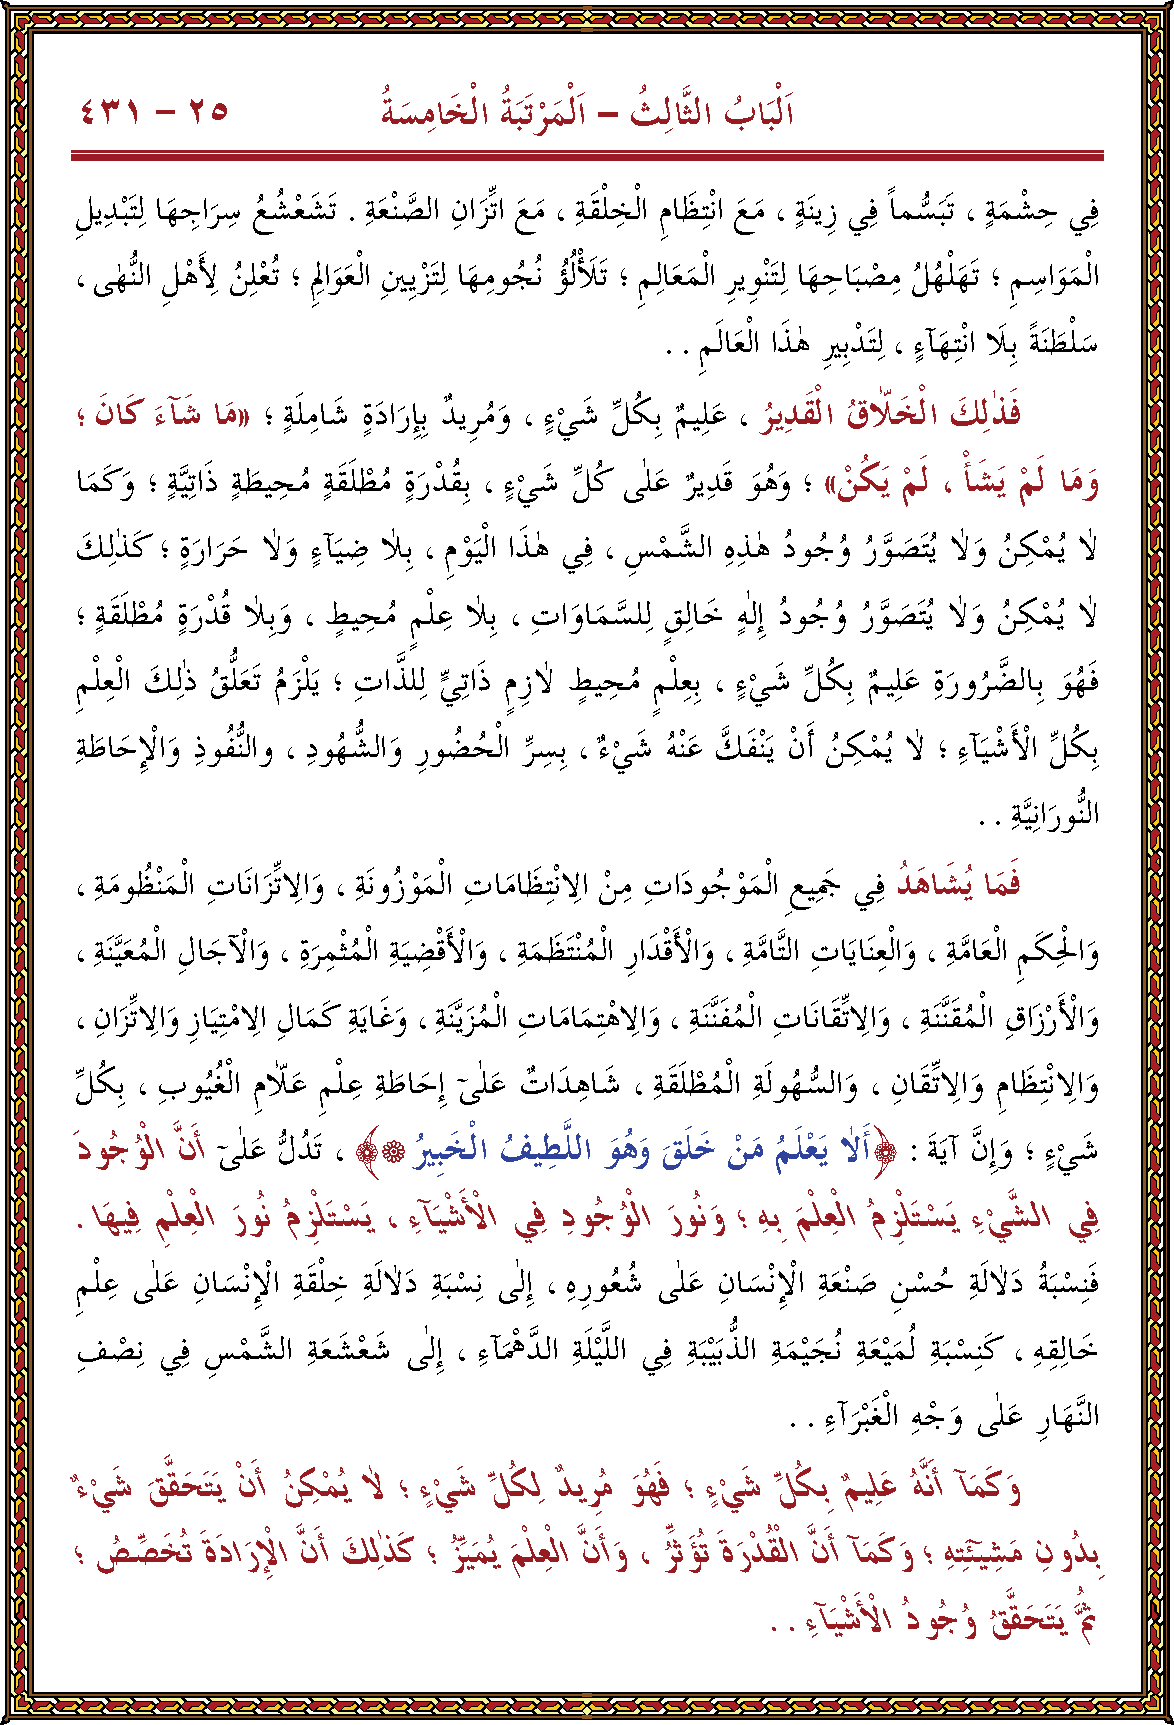 اَلْبَابُ الثَّالِثُ – اَلْمَرْتَبَةُ الْخَامِسَةُ ٢٥ – ٤٣١
فِي حِشْمَةٍ ، تَبَسُّماً فِي زِينَةٍ ، مَعَ انْتِظَامِ الْخِلْقَةِ ، مَعَ اتِّزَانِ الصَّنْعَةِ . تَشَعْشُعُ سِرَاجِهَا لِتَبْدِيلِ
الْمَوَاسِمِ ؛ تَهَلْهُلُ مِصْبَاحِهَا لِتَنْوِيرِ الْمَعَالِمِ ؛ تَلَأْلُؤُ نُجُومِهَا لِتَزْيِينِ الْعَوَالِمِ ؛ تُعْلِنُ لِأَهْلِ النُّهٰى ،
سَلْطَنَةً بِلَا انْتِهَآءٍ ، لِتَدْبِيرِ هٰذَا الْعَالَمِ . .
فَذٰلِكَ الْخَلَّاقُ الْقَدِيرُ ، عَلِيمٌ بِكُلِّ شَيْءٍ ، وَمُرِيدٌ بِإِرَادَةٍ شَامِلَةٍ ؛ «مَا شَآءَ كَانَ ؛
وَمَا لَمْ يَشَأْ ، لَمْ يَكُنْ» ؛ وَهُوَ قَدِيرٌ عَلٰى كُلِّ شَيْءٍ ، بِقُدْرَةٍ مُطْلَقَةٍ مُحِيطَةٍ ذَاتِيَّةٍ ؛ وَكَمَا
لَا يُمْكِنُ وَلَا يُتَصَوَّرُ وُجُودُ هٰذِهِ الشَّمْسِ ، فِي هٰذَا الْيَوْمِ ، بِلَا ضِيَآءٍ وَلَا حَرَارَةٍ ؛ كَذٰلِكَ
لَا يُمْكِنُ وَلَا يُتَصَوَّرُ وُجُودُ إِلٰهٍ خَالِقٍ لِلسَّمَاوَاتِ ، بِلَا عِلْمٍ مُحِيطٍ ، وَبِلَا قُدْرَةٍ مُطْلَقَةٍ ؛
فَهُوَ بِالضَّرُورَةِ عَلِيمٌ بِكُلِّ شَيْءٍ ، بِعِلْمٍ مُحِيطٍ لَازِمٍ ذَاتِيٍّ لِلذَّاتِ ؛ يَلْزَمُ تَعَلُّقُ ذٰلِكَ الْعِلْمِ
بِكُلِّ الْأَشْيَآءِ ؛ لَا يُمْكِنُ أَنْ يَنْفَكَّ عَنْهُ شَيْءٌ ، بِسِرِّ الْحُضُورِ وَالشُّهُودِ ، والنُّفُوذِ وَالْإِحَاطَةِ
النُّورَانِيَّةِ . .
فَمَا يُشَاهَدُ فِي جَمِيعِ الْمَوْجُودَاتِ مِنْ الِانْتِظَامَاتِ الْمَوْزُونَةِ ، وَالِاتِّزَانَاتِ الْمَنْظُومَةِ ،
وَالْحِكَمِ الْعَامَّةِ ، وَالْعِنَايَاتِ التَّامَّةِ ، وَالْأَقْدَارِ الْمُنْتَظَمَةِ ، وَالْأَقْضِيَةِ الْمُثْمِرَةِ ، وَالْآجَالِ الْمُعَيَّنَةِ ،
وَالْأَرْزَاقِ الْمُقَنَّنَةِ ، وَالِاتِّقَانَاتِ الْمُفَنَّنَةِ ، وَالِاهْتِمَامَاتِ الْمُزَيَّنَةِ ، وَغَايَةِ كَمَالِ الِامْتِيَازِ وَالِاتِّزَانِ ،
وَالِانْتِظَامِ وَالِاتِّقَانِ ، وَالسُّهُولَةِ الْمُطْلَقَةِ ، شَاهِدَاتٌ عَلٰٓى إِحَاطَةِ عِلْمِ عَلَّامِ الْغُيُوبِ ، بِكُلِّ
شَيْءٍ ؛ وَإِنَّ آيَةَ : ﴿أَلَا يَعْلَمُ مَنْ خَلَقَ وَهُوَ اللَّطِيفُ الْخَبِيرُ ۞﴾ ، تَدُلُّ عَلٰٓى أَنَّ الْوُجُودَ
فِي الشَّيْءِ يَسْتَلْزِمُ الْعِلْمَ بِهِ ؛ وَنُورَ الْوُجُودِ فِي الْأَشْيَآءِ ، يَسْتَلْزِمُ نُورَ الْعِلْمِ فِيهَا .
فَنِسْبَةُ دَلَالَةِ حُسْنِ صَنْعَةِ الْإِنْسَانِ عَلٰى شُعُورِهِ ، إِلٰى نِسْبَةِ دَلَالَةِ خِلْقَةِ الْإِنْسَانِ عَلٰى عِلْمِ
خَالِقِهِ ، كَنِسْبَةِ لُمَيْعَةِ نُجَيْمَةِ الذُّبَيْبَةِ فِي اللَّيْلَةِ الدَّهْمَآءِ ، إِلٰى شَعْشَعَةِ الشَّمْسِ فِي نِصْفِ
النَّهَارِ عَلٰى وَجْهِ الْغَبْرَآءِ . .
وَكَمَآ أَنَّهُ عَلِيمٌ بِكُلِّ شَيْءٍ ؛ فَهُوَ مُرِيدٌ لِكُلِّ شَيْءٍ ؛ لَا يُمْكِنُ أَنْ يَتَحَقَّقَ شَيْءٌ
بِدُونِ مَشِيئَتِهِ ؛ وَكَمَآ أَنَّ الْقُدْرَةَ تُؤَثِّرُ ، وَأَنَّ الْعِلْمَ يُمَيِّزُ ؛ كَذٰلِكَ أَنَّ الْإِرَادَةَ تُخَصِّصُ ؛
ثُمَّ يَتَحَقَّقُ وُجُودُ الْأَشْيَآءِ . .